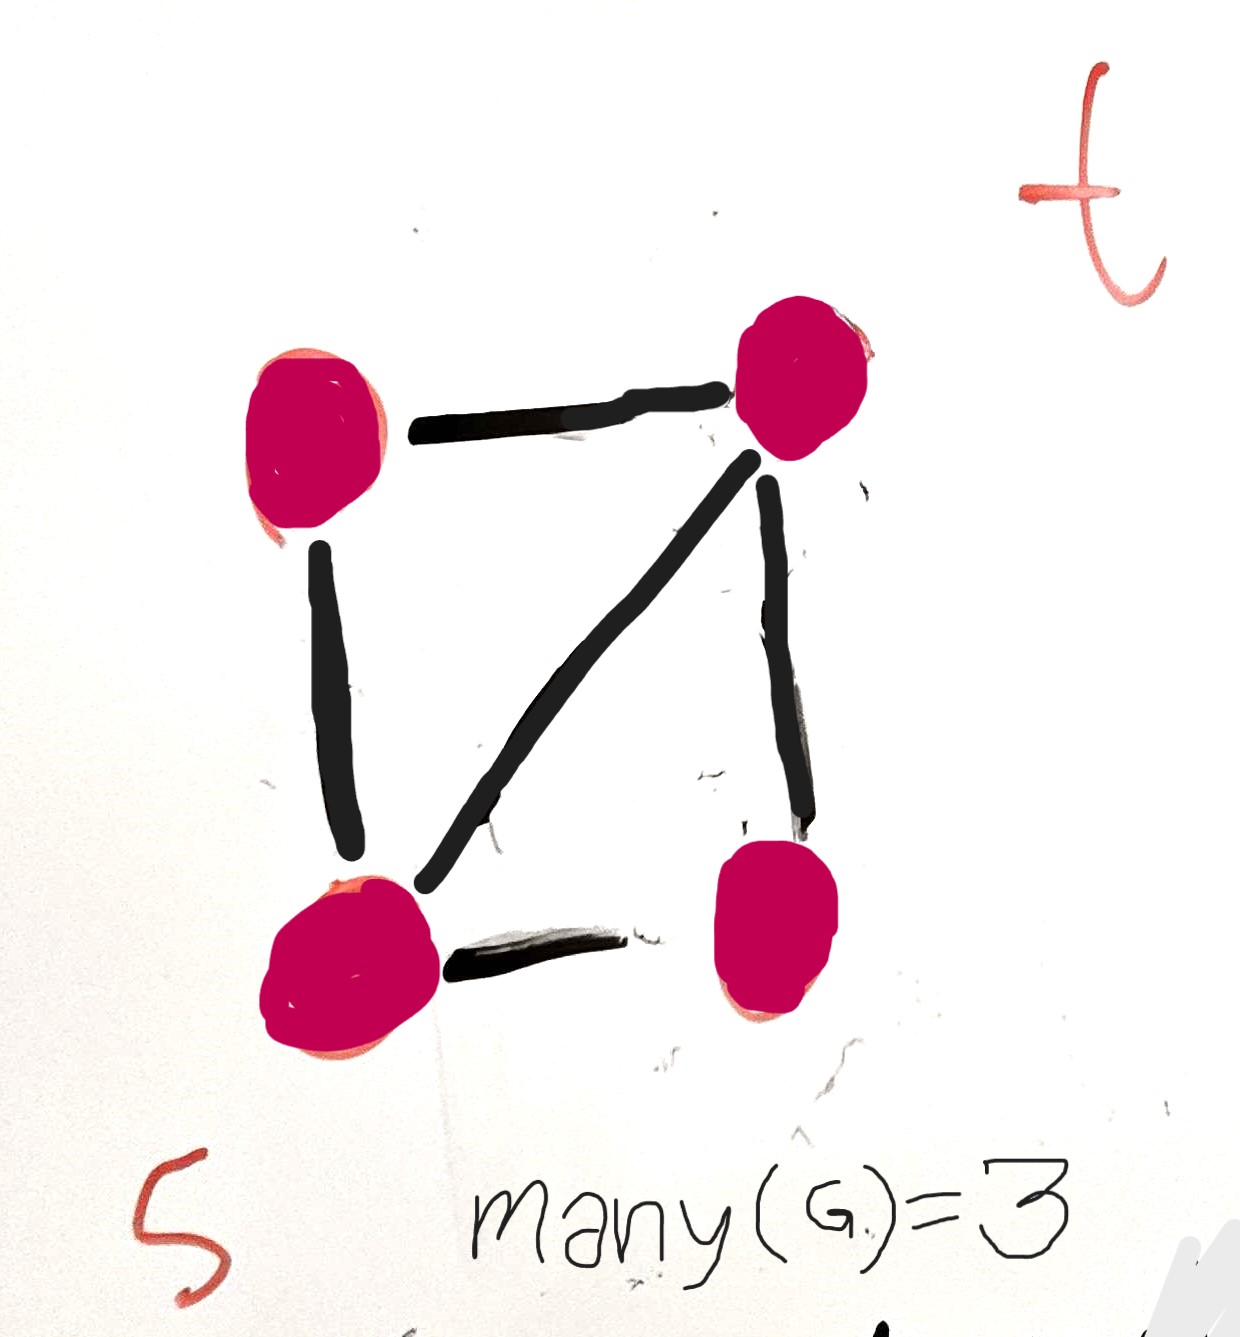 t
s
many(G)=3